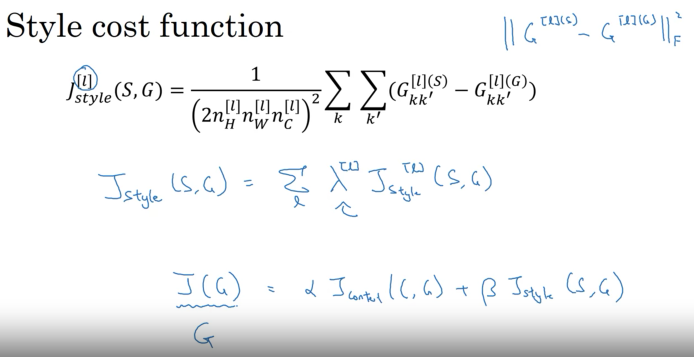 Style cost function
|| G^[l](S) - G^[l](G) ||_F^2
J_style^[l](S, G) = 1/(2n_H^[l] n_W^[l] n_C^[l])^2 ∑_k ∑_k' (G_kk'^[l](S) − G_kk'^[l](G))
J_style (S,G) = ∑_l λ^[l] J_style^[l] (S,G)
J(G) = α J_content (C,G) + β J_style (S,G)
G